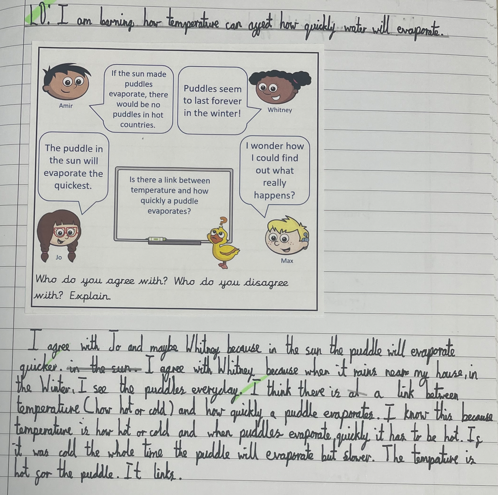 LO: I am learning how temperature can affect how quickly water will evaporate.
If the sun made
puddles
evaporate, there
would be no
puddles in hot
countries.
Amir
Puddles seem
to last forever
in the winter!
Whitney
The puddle in
the sun will
evaporate the
quickest.
Jo
Is there a link between
temperature and how
quickly a puddle
evaporates?
I wonder how
I could find
out what
really
happens?
Max
Who do you agree with? Who do you disagree
with? Explain.
I agree with Jo and maybe Whitney because in the sun the puddle will evaporate
quicker. in the sun. I agree with Whitney because when it rains near my house, in
the Winter, I see the puddles everyday. I think there is a link between
temperature (how hot or cold) and how quickly a puddle evaporates. I know this because
temperature is how hot or cold and when puddles evaporate quickly it has to be hot. If
it was cold the whole time the puddle will evaporate but slower. The tempature is
hot for the puddle. It links.